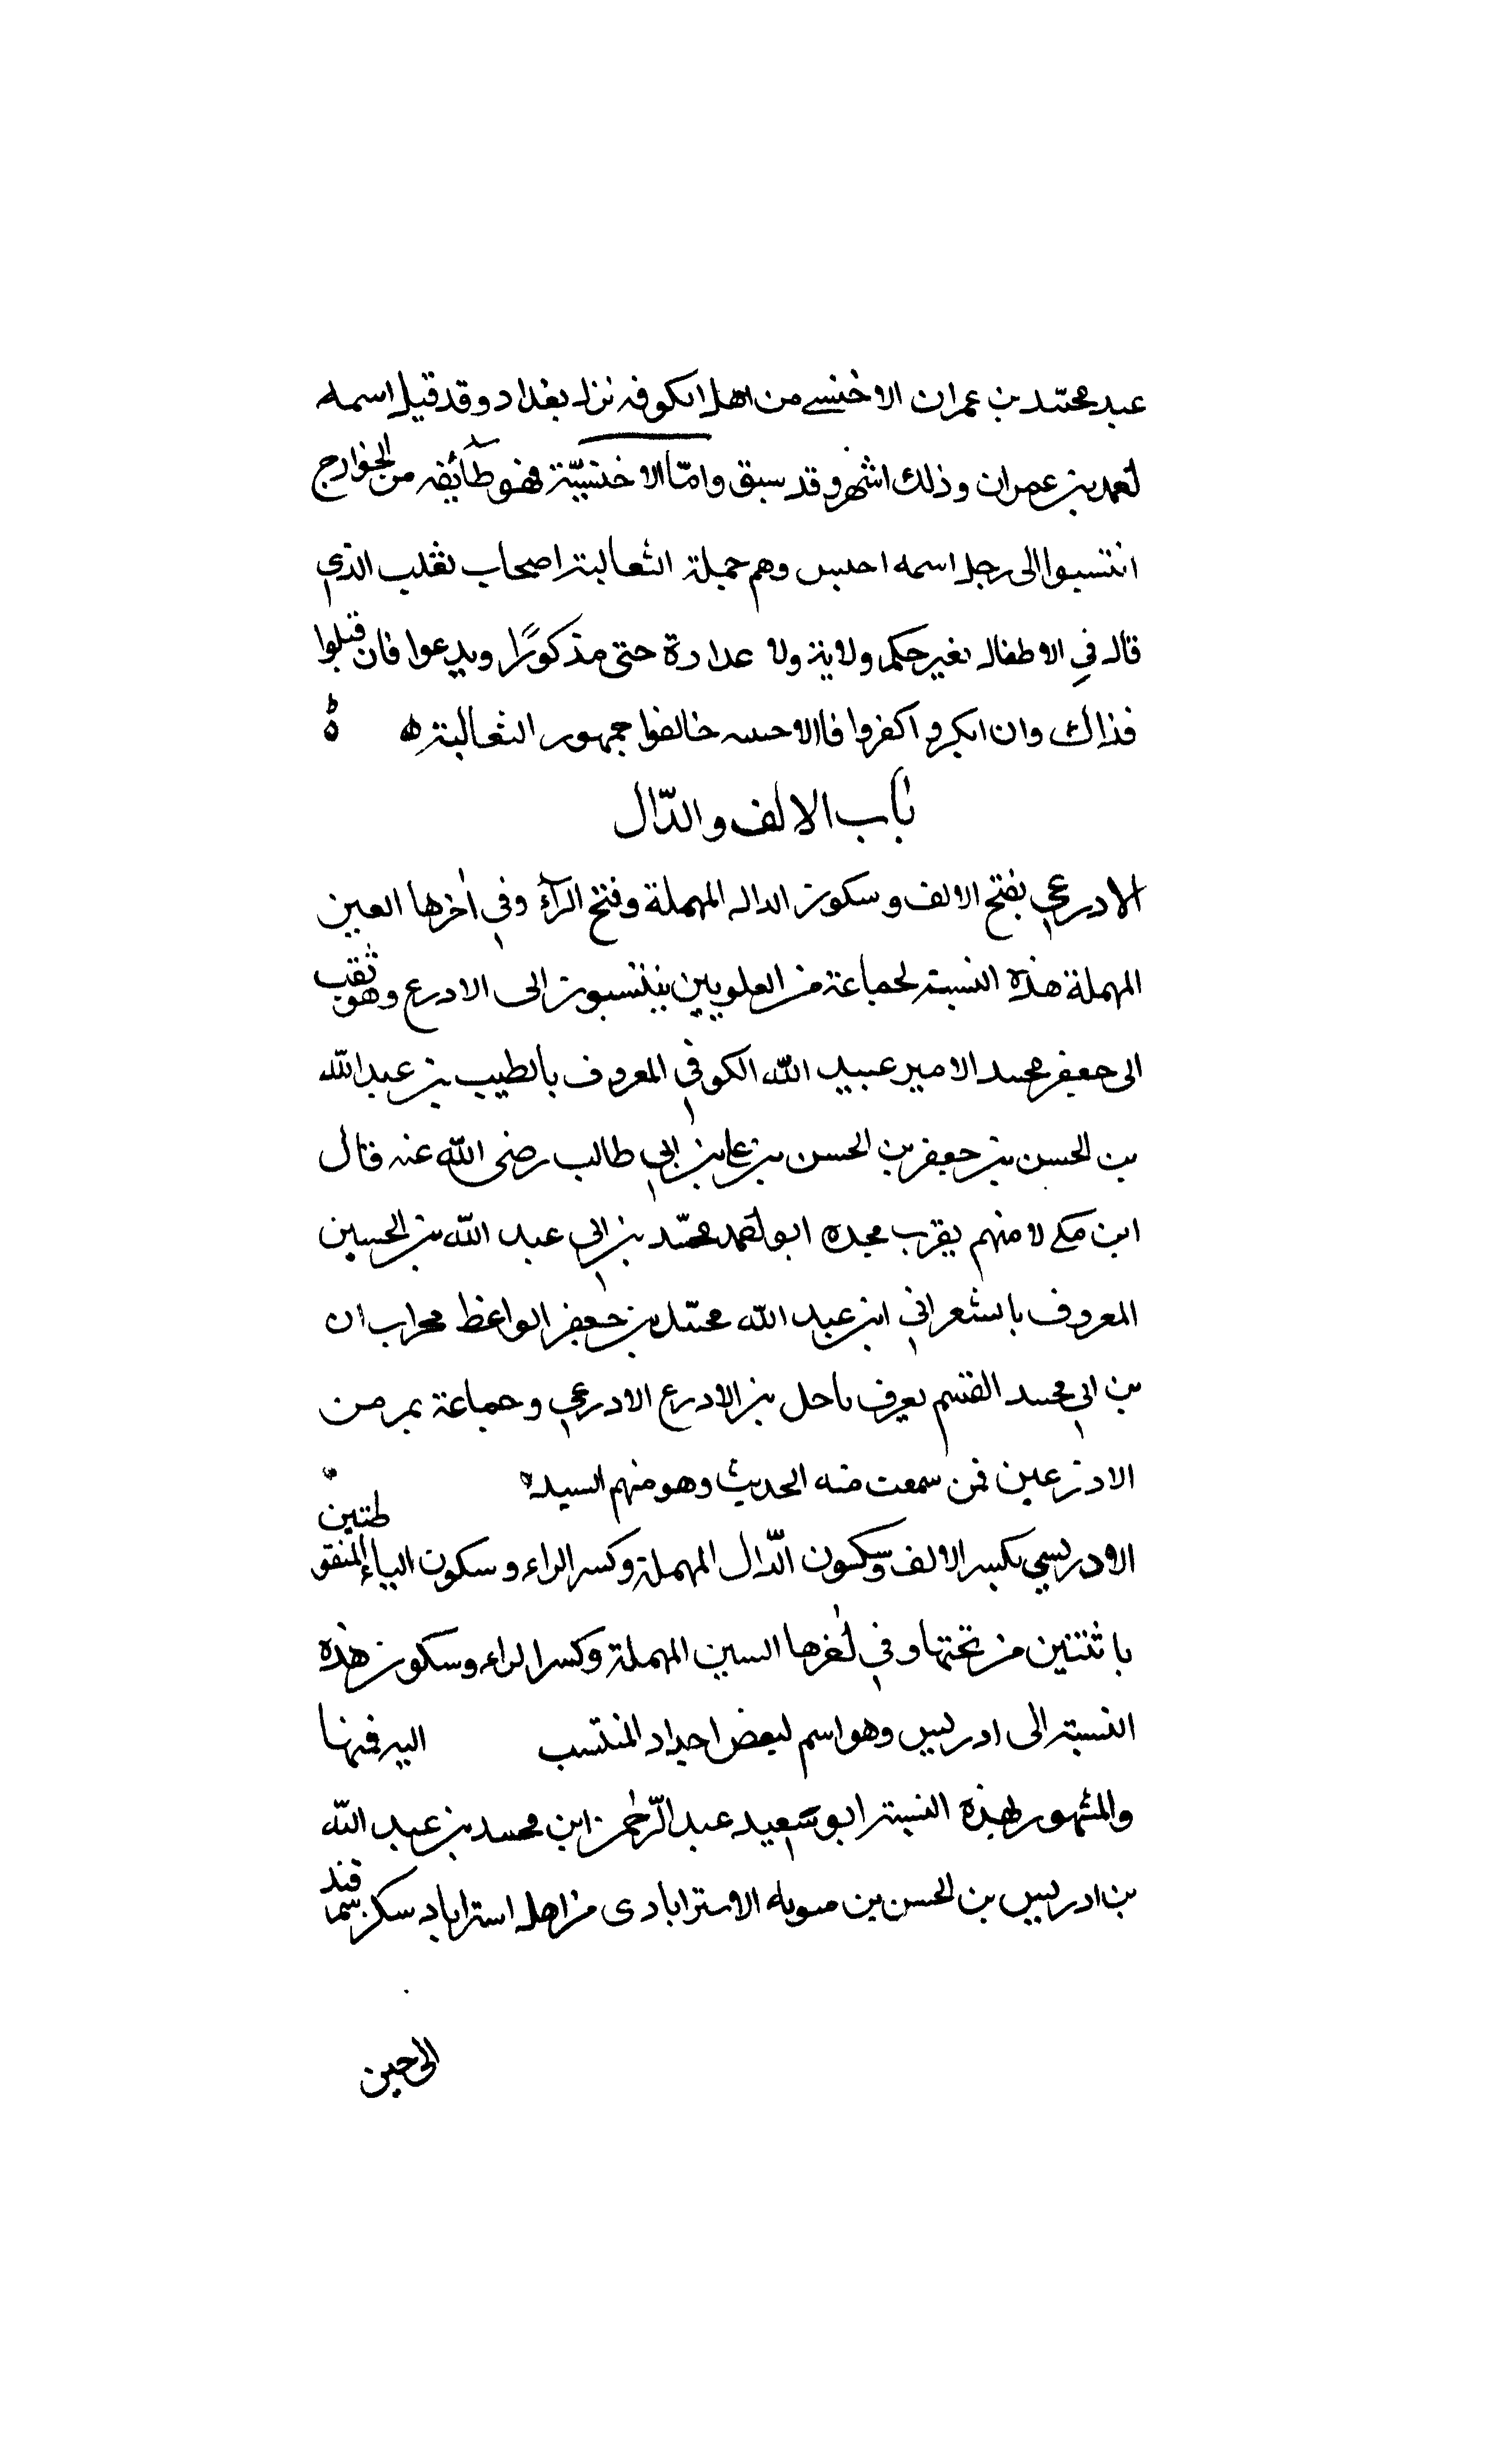 عبد محمّد بن عمران الاخنسي من اهل الكوفه نزل بغداد وقد قيل اسمه
احمد بن عمران وذلك اشهر وقد سبق وامّا الاخنسيّة فهو طآئفه من الخوارج
انتسبوا الى رجل اسمه احنس وهم جملة الثعالبة اصحاب ثعلب الذي
قال في الاطفال بغير حكم ولاية ولا عداوة حتى مذكورًا ويدعوا فان قبلوا
فذاك وان انكروا كفروا فاالاحنسه خالفوا جمهور الثعالبة ه ه
باب الالف والدّال
الادرعي بفتح الالف وسكون الدال المهملة وفتح الرآء وفي اخرها العين
المهملة هذه النسبة لجماعة من العلويين ينتسبون الى الادرع وهو لقب
الى جعفر محمد الامير عبيد الله الكوفي المعروف بالطيب بن عبد الله
بن الحسن بن جعفر بن الحسن بن على بن ابي طالب رضى الله عنه قال
ابن مكولا منهم يقرب مجده ابو احمد محمّد بن ابي عبد الله بن الحسين
المعروف بالشعراني ابن عبد الله محمّد بن جعفر الواعظ محراب ان
بن ابي محمد القسم يعرف باحل بن الادرع الادرعي وجماعة بمر من
الادرعين فمن سمعت منه الحديث وهو منهم السيد
الادريسي بكسر الالف وسكون الدّال المهملة وكسر الراء وسكون الياء المنقوطتين
باثنتين من تحتها وفي اخرها السين المهملة وكسر الراء وسكون هذه
النسبة الى ادريس وهو اسم لبعض اجداد المنتسب اليه فمنها
والمشهور بهذه النسبة ابو سعيد عبد الرّحمن ابن محمد بن عبد الله
بن ادريس بن الحسن بن متويه الاسترابادى من اهل استراباد سكن سمرقند
الى حين